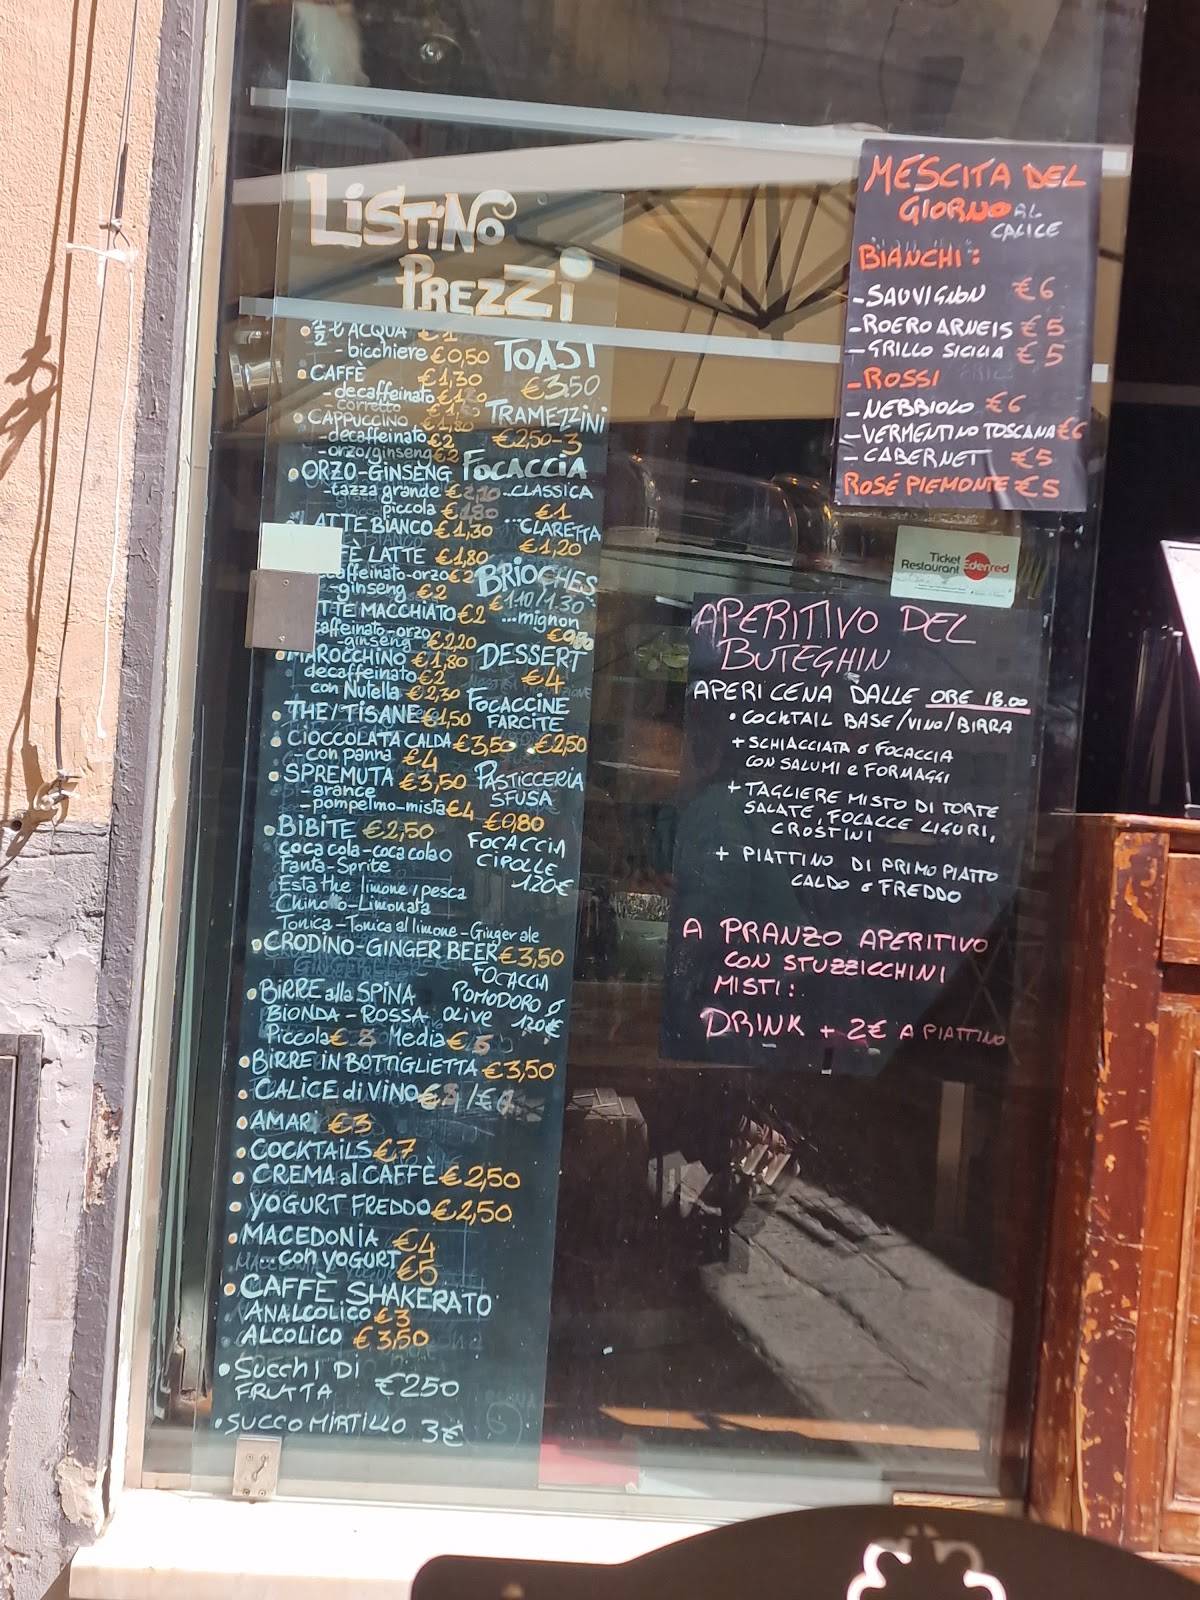 LISTINO
PREZZI
½ l ACQUA €1
- bicchiere €0,50
CAFFÈ €1,30
- decaffeinato
corretto
CAPPUCCINO €1,80
- decaffeinato €2
- orzo/ginseng €2
ORZO-GINSENG
- tazza grande
piccola
LATTE BIANCO €1,30
LATTE €1,80
€2
- ginseng €2
MACCHIATO €2
ginseng €2,20
MAROCCHINO €1,80
decaffeinato €2
con Nutella €2,30
THE/TISANE €1,50
CIOCCOLATA CALDA €3,50
- con panna €4
SPREMUTA €3,50
- arance
- pompelmo-mista €4
BIBITE €2,50
coca cola-coca cola 0
Fanta-Sprite
Esta the limone/pesca
Limonata
Tonica-Tonica al limone-Ginger ale
CRODINO-GINGER BEER €3,50
BIRRE alla SPINA
BIONDA - ROSSA
Piccola € Media €
BIRRE IN BOTTIGLIETTA €3,50
CALICE di VINO
AMARI €3
COCKTAILS €7
CREMA al CAFFÈ €2,50
YOGURT FREDDO €2,50
MACEDONIA €4
...con YOGURT €5
CAFFÈ SHAKERATO
ANALCOLICO €3
ALCOLICO €3,50
SUCCHI DI
FRUTTA €250
SUCCO MIRTILLO 3€
TOAST
€3,50
TRAMEZZINI
€2,50-3
FOCACCIA
...CLASSICA
€1
...CLARETTA
€1,20
BRIOCHES
€1.10/1.30
...mignon
DESSERT
€4
FOCACCINE
FARCITE
€2,50
PASTICCERIA
SFUSA
€0,80
FOCACCIA
CIPOLLE
1.20€
FOCACCIA
POMODORO o
OLIVE 1.20€
MESCITA DEL
GIORNO AL
CALICE
BIANCHI:
-SAUVIGNON €6
-ROERO ARNEIS €5
-GRILLO SICILIA €5
-ROSSI
-NEBBIOLO €6
-VERMENTINO TOSCANA €6
-CABERNET €5
ROSÉ PIEMONTE €5
Ticket
Restaurant Edenred
APERITIVO DEL
BUTEGHIN
APERICENA DALLE ORE 18.00
• COCKTAIL BASE/VINO/BIRRA
+ SCHIACCIATA o FOCACCIA
CON SALUMI e FORMAGGI
+ TAGLIERE MISTO DI TORTE
SALATE, FOCACCE LIGURI,
CROSTINI
+ PIATTINO DI PRIMO PIATTO
CALDO o FREDDO
A PRANZO APERITIVO
CON STUZZICCHINI
MISTI:
DRINK + 2€ A PIATTINO